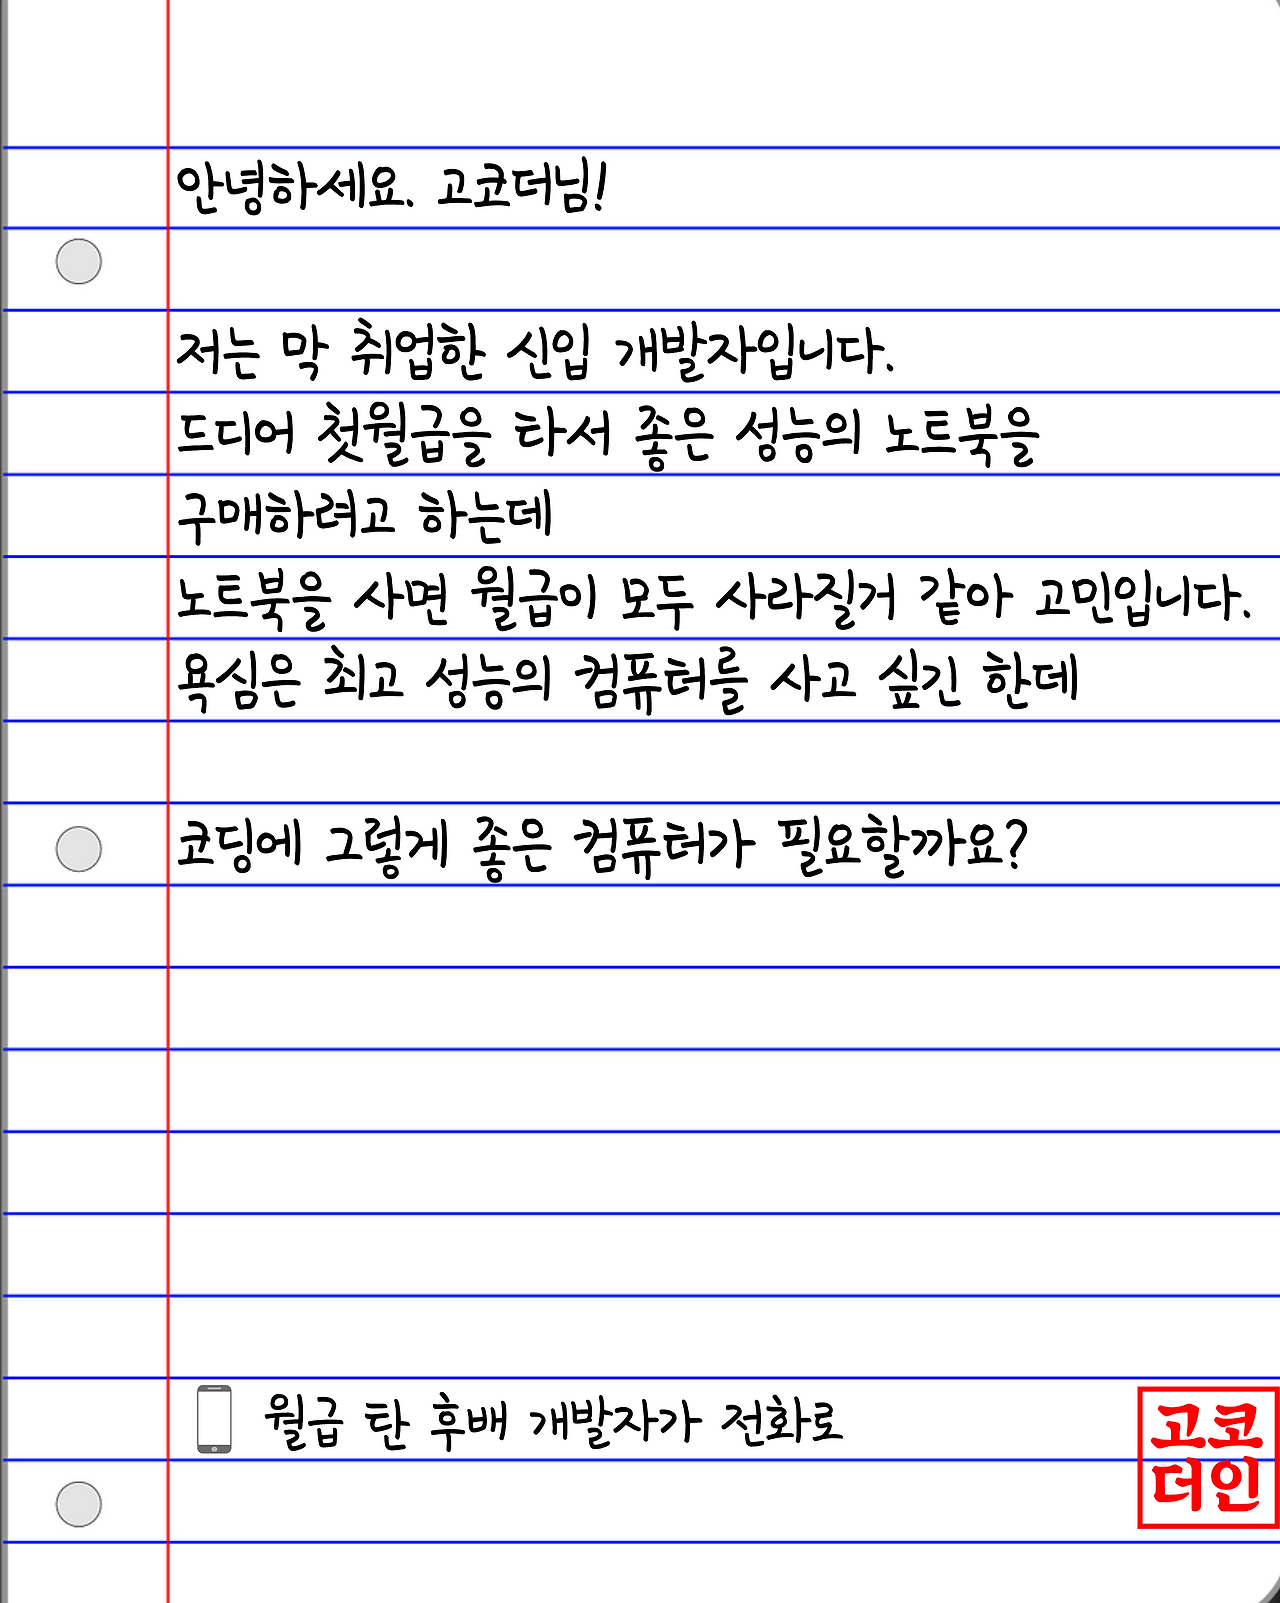 안녕하세요. 고코더님!
저는 막 취업한 신입 개발자입니다.
드디어 첫월급을 타서 좋은 성능의 노트북을
구매하려고 하는데
노트북을 사면 월급이 모두 사라질거 같아 고민입니다.
욕심은 최고 성능의 컴퓨터를 사고 싶긴 한데
코딩에 그렇게 좋은 컴퓨터가 필요할까요?
월급 탄 후배 개발자가 전화로
고코
더인